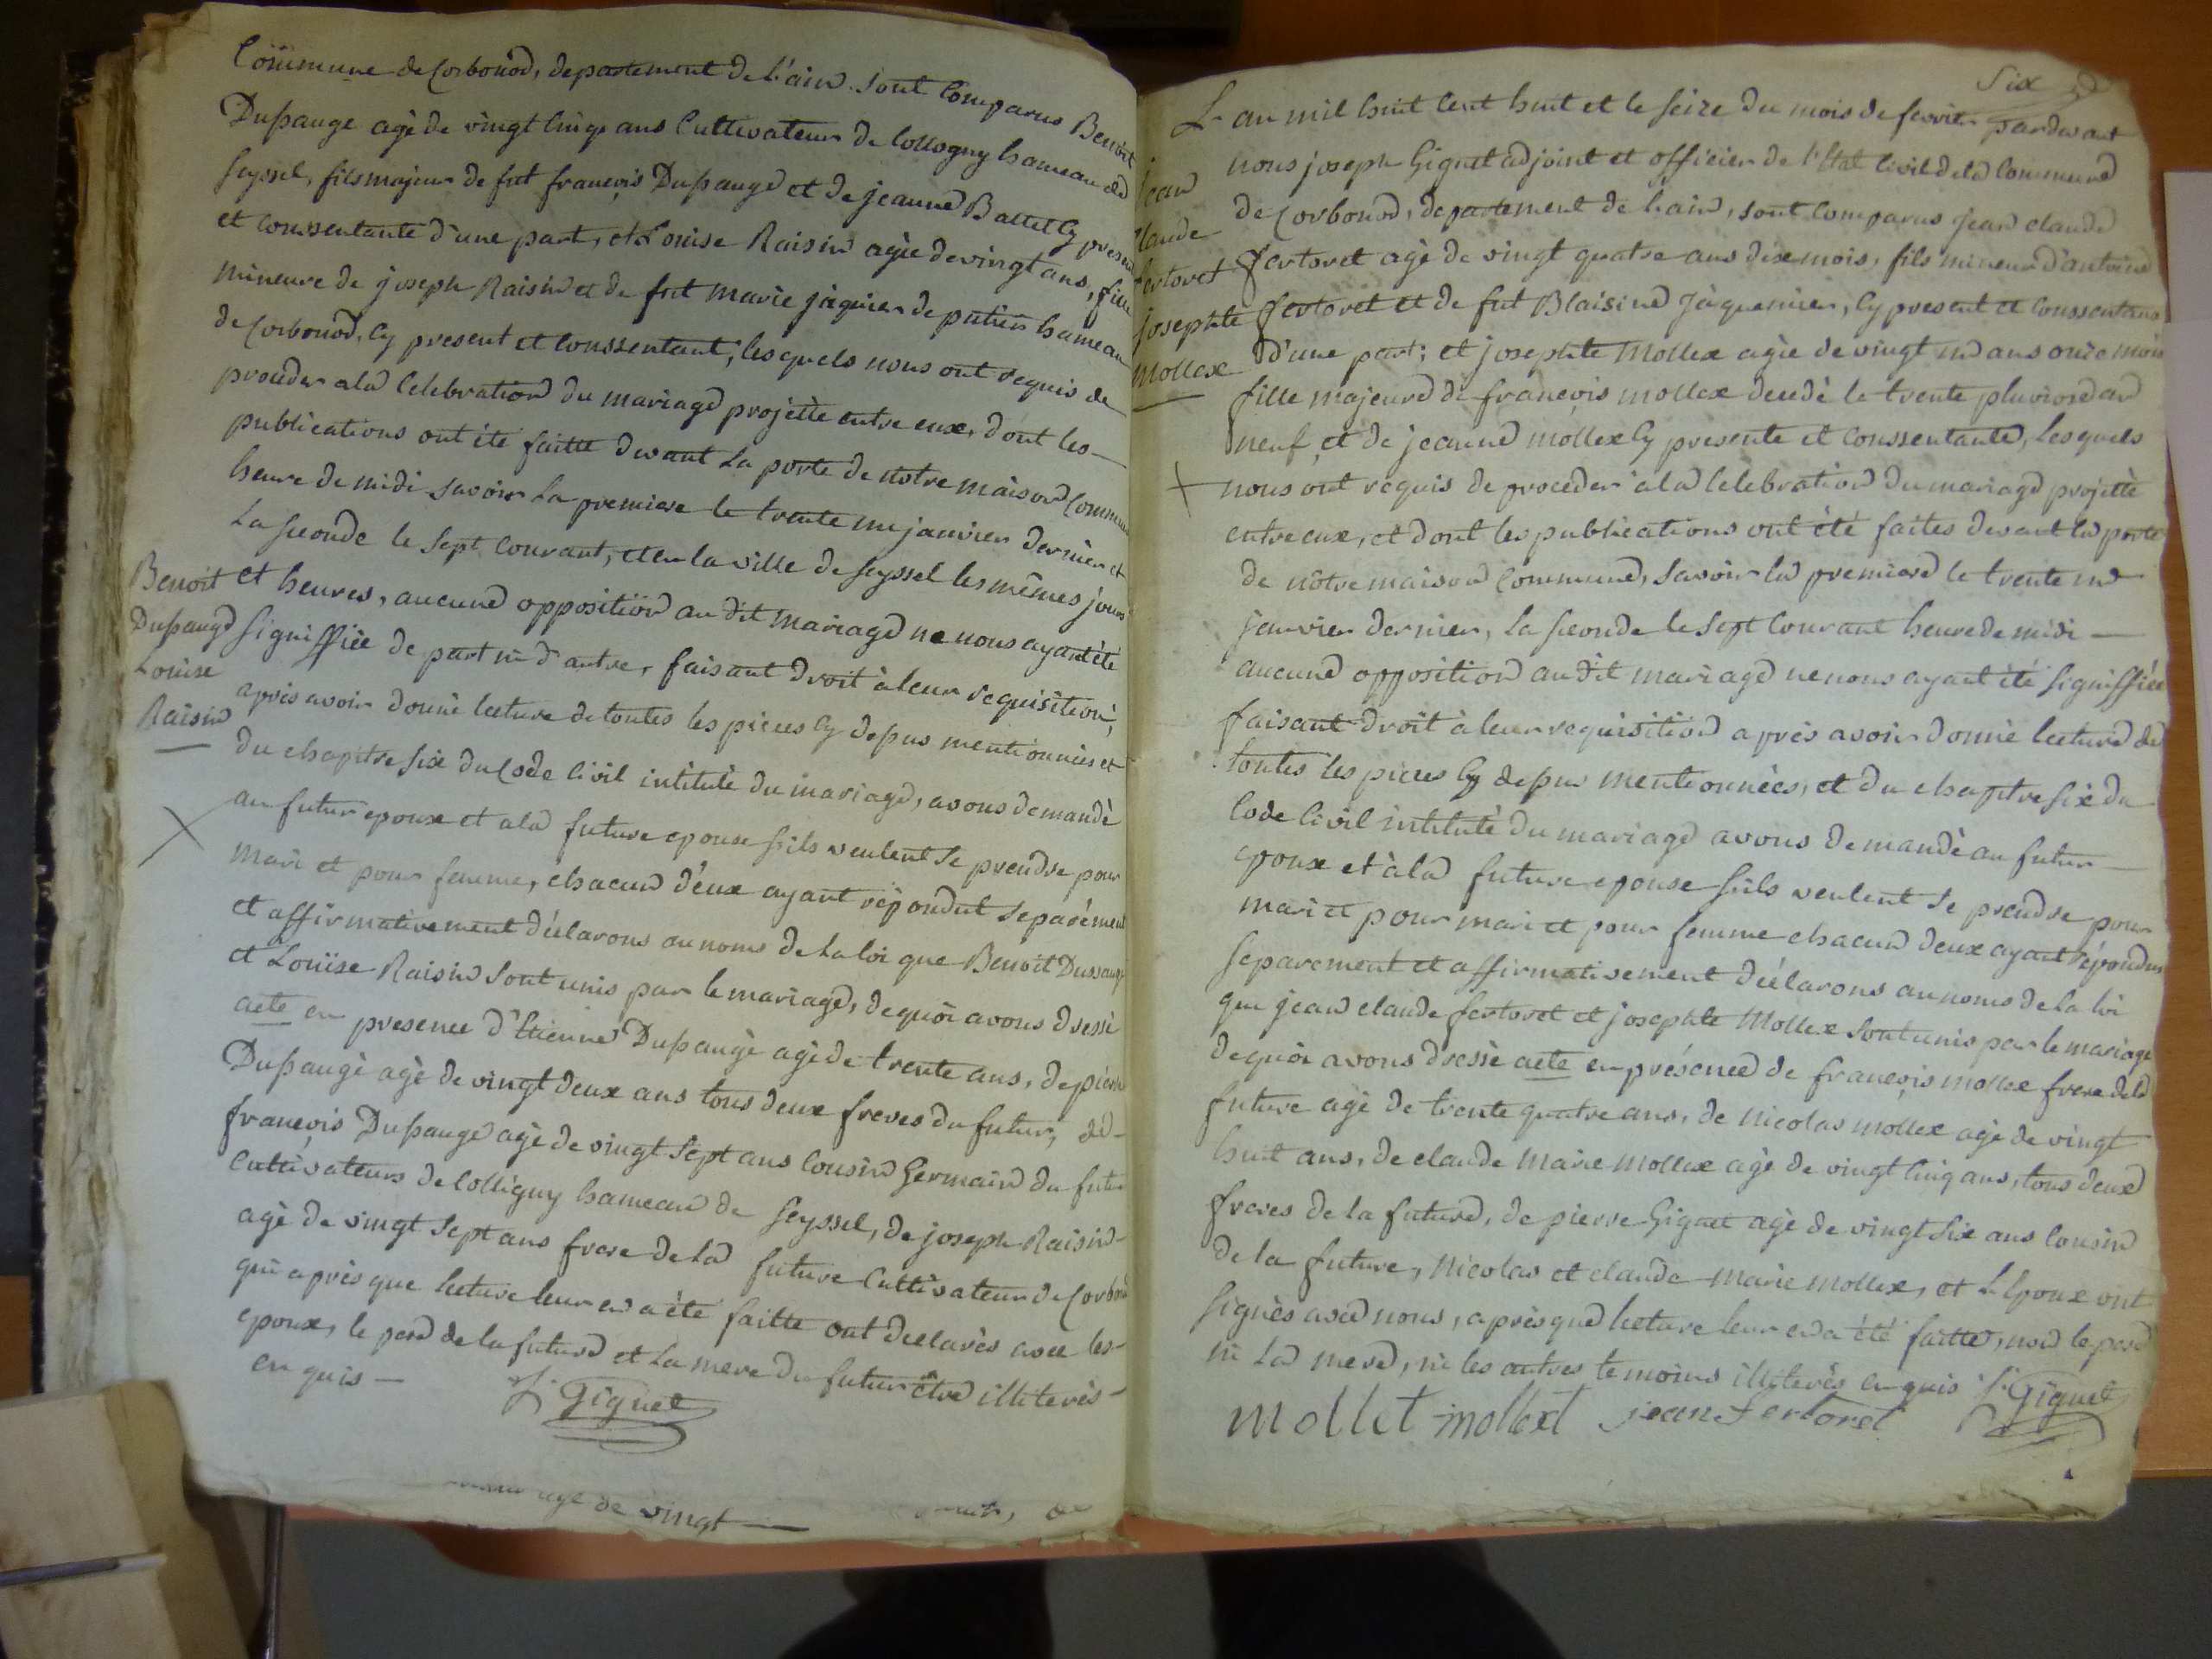 Commune de Corbonod, departement de l'ain. Sont Comparus Benoit
Dussauge agé de vingt Cinq ans Cultivateur de Collogny hameau de
Seyssel, fils majeur de fut françois Dussauge et de jeanne Ballet Cy presen
et conssentante d'une part, et Louise Raisin agée de vingt ans, fille
mineure de joseph Raisin et de fut marie jaquier de putier hameau
de Corbonod, Cy present et conssentant, lesquels nous ont requis de
proceder a la Celebration du mariage projetté entre eux, dont les
publications ont été faitte devant la porte de notre maison Commune
heure de midi savoir La premiere le trente un janvier dernier et
La seconde le sept Courant, et en la ville de Seyssel les mêmes jours
et heures, aucune opposition au dit mariage ne nous ayant été
Signiffiée de part ni d'autre, faisant droit à leur requisition,
après avoir donné lecture de toutes les pieces Cy dessus mentionnées et
du chapitre six du Code Civil intitulé du mariage, avons demandé
au futur epoux et a la future epouse s'ils veulent se prendre pour
mari et pour femme, chacun d'eux ayant répondut separément
et affirmativement déclarons au noms de la loi que Benoit Dussauge
et Louise Raisin sont unis par le mariage, de quoi avons dressé
acte en presence d'Etienne Dussauge agé de trente ans, de pierre
Dussauge agé de vingt deux ans tous deux freres du futur, de
françois Dussauge agé de vingt sept ans Cousin Germain du futur
Cultivateurs de Colligny hameau de Seyssel, de joseph Raisin
agé de vingt sept ans frere de la future Cultivateur de Corbonod
qui après que lecture leur en a été faitte ont declarés avec les
epoux, le pere de la future et la mere du futur être illiterés
en quis
J. Giguet
Benoit
Dussauge
Louise
Raisin
age de vingt
Six
L'an mil huit Cent huit et le seize du mois de fevrier pardevant
nous joseph Giguet adjoint et officier de l'Etat Civil de la Commune
de Corbonod, departement de l'ain, sont Comparus jean claude
fertoret agé de vingt quatre ans dix mois, fils mineur d'antoine
fertoret et de fut Blaisine jaquemier, Cy present et conssentans
d'une part; et josephte Mollex agée de vingt un ans onze mois
fille majeure de françois mollex decedé le trente pluviose an
neuf, et de jeanne mollex Cy presente et conssentante, lesquels
nous ont requis de proceder a la Celebration du mariage projetté
entre eux, et dont les publications ont été faites devant la porte
de notre maison Commune, savoir la premiere le trente un
janvier dernier, la seconde le sept Courant heure de midi
aucune opposition au dit mariage ne nous ayant été signiffiée
faisant droit à leur requisition après avoir donné lecture de
toutes les pieces Cy dessus mentionnées, et du chapitre six du
Code Civil intitulé du mariage avons demandé au futur
epoux et à la future epouse s'ils veulent se prendre pour
mari et pour mari et pour femme chacun deux ayant répondus
separement et affirmativement déclarons au noms de la loi
que jean claude fertoret et josephte Mollex sont unis par le mariage
de quoi avons dressé acte en présence de françois mollex frere de la
future agé de trente quatre ans, de nicolas mollex agé de vingt
huit ans, de claude marie mollex agé de vingt Cinq ans, tous deux
freres de la future, de pierre Giguet agé de vingt six ans Cousin
de la future, nicolas et claude marie mollex, et L'Epoux ont
signés avec nous, après que lecture leur en a été faitte, non le pere
ni la mere, ni les autres temoins illiterés en quis J. Giguet
mollet mollex jean fertoret
jean
claude
fertoret
josephte
Mollex